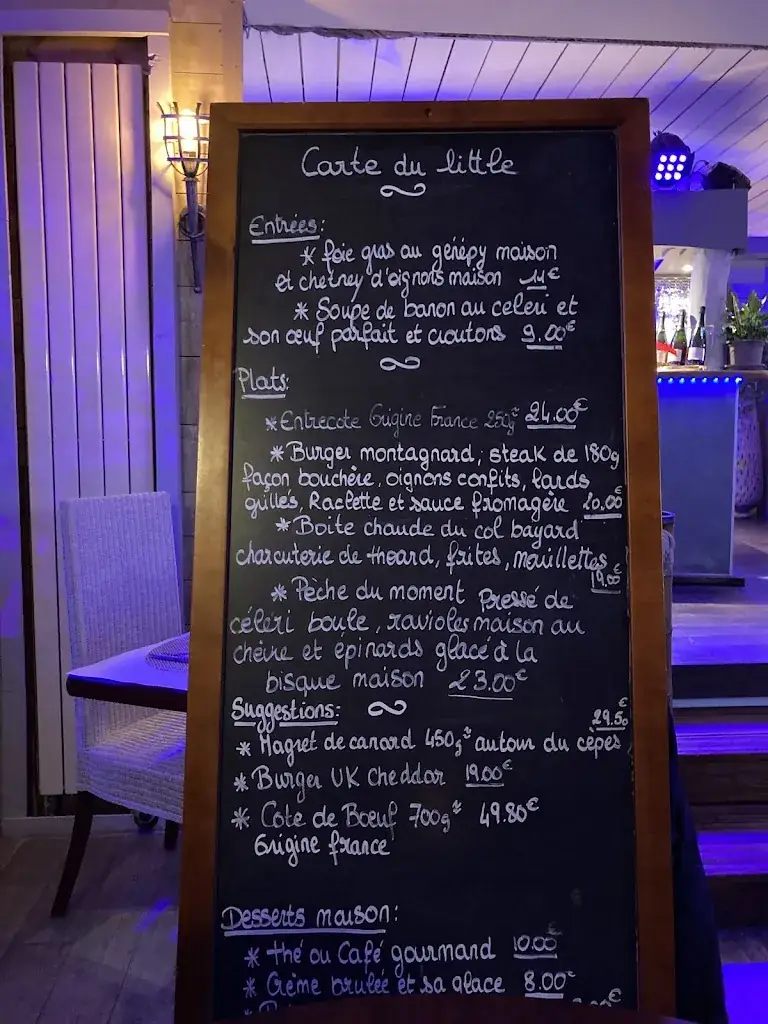 Carte du little
Entrées:
* foie gras au génépy maison
et chetney d'oignons maison 11€
* Soupe de banon au celeri et
son œuf parfait et croutons 9.00€
Plats:
* Entrecote Origine France 250g 24.00€
* Burger montagnard, steak de 180g
façon bouchère, oignons confits, lards
grillés, Raclette et sauce fromagère 20.00€
* Boite chaude du col bayard
charcuterie de thoard, frites, mouillettes
19.00€
* Pèche du moment Pressé de
céleri boule, ravioles maison au
chèvre et épinards glacé à la
bisque maison 23.00€
Suggestions:
29.50€
* Magret de canard 450g² autour du cèpes
* Burger UK Cheddar 19.00€
* Cote de Boeuf 700g² 49.80€
Origine france
Desserts maison:
* thé ou Café gourmand 10.00€
* Crème brulée et sa glace 8.00€